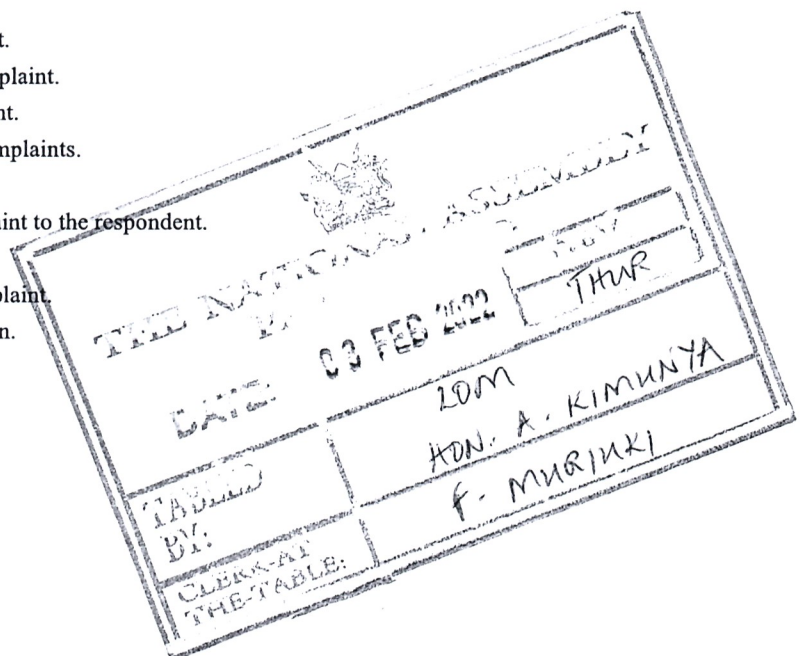 t.
plaint.
nt.
nplaints.
aint to the respondent.
plaint.
n.
THE NATIONAL ASSEMBLY
DATE: 03 FEB 2022
DAY
THUR
TABLED
BY:
LOM
HON. A. KIMUNYA
CLERK-AT
THE-TABLE:
F. MURIUKI